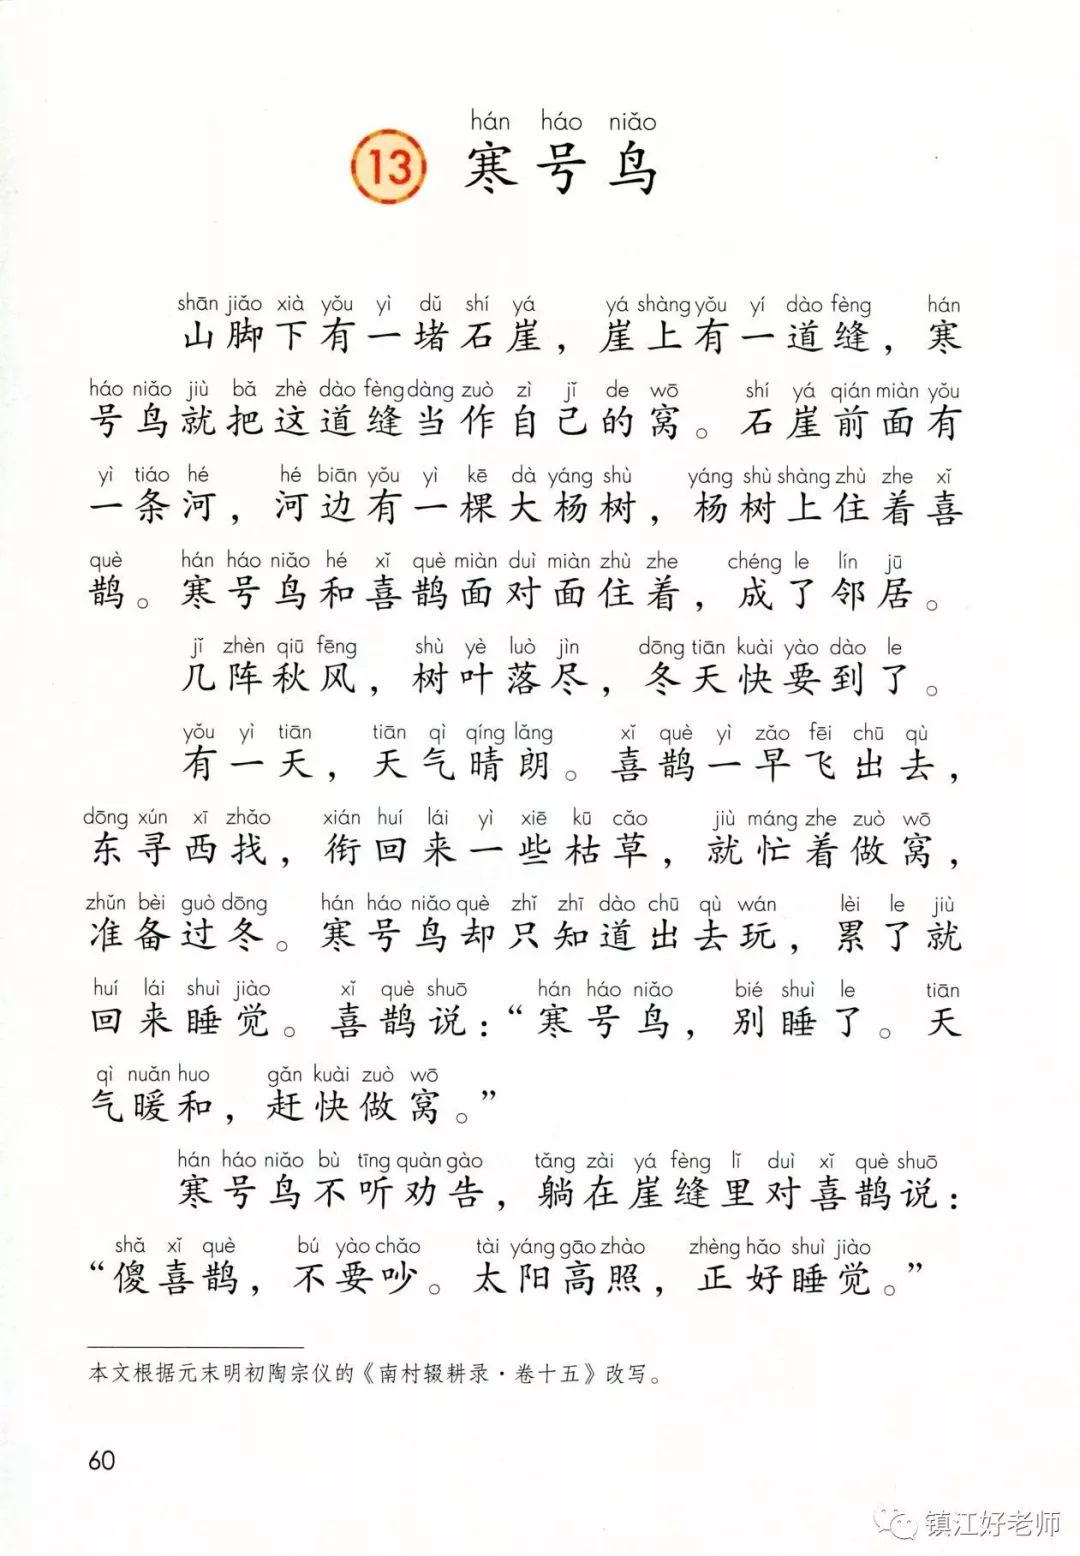 hán háo niǎo
13 寒号鸟
shān jiǎo xià yǒu yì dǔ shí yá yá shàng yǒu yí dào fèng hán
山脚下有一堵石崖，崖上有一道缝，寒
háo niǎo jiù bǎ zhè dào fèng dàng zuò zì jǐ de wō shí yá qián miàn yǒu
号鸟就把这道缝当作自己的窝。石崖前面有
yì tiáo hé hé biān yǒu yì kē dà yáng shù yáng shù shàng zhù zhe xǐ
一条河，河边有一棵大杨树，杨树上住着喜
què hán háo niǎo hé xǐ què miàn duì miàn zhù zhe chéng le lín jū
鹊。寒号鸟和喜鹊面对面住着，成了邻居。
jǐ zhèn qiū fēng shù yè luò jìn dōng tiān kuài yào dào le
几阵秋风，树叶落尽，冬天快要到了。
yǒu yì tiān tiān qì qíng lǎng xǐ què yì zǎo fēi chū qù
有一天，天气晴朗。喜鹊一早飞出去，
dōng xún xī zhǎo xián huí lái yì xiē kū cǎo jiù máng zhe zuò wō
东寻西找，衔回来一些枯草，就忙着做窝，
zhǔn bèi guò dōng hán háo niǎo què zhǐ zhī dào chū qù wán lèi le jiù
准备过冬。寒号鸟却只知道出去玩，累了就
huí lái shuì jiào xǐ què shuō hán háo niǎo bié shuì le tiān
回来睡觉。喜鹊说：“寒号鸟，别睡了。天
qì nuǎn huo gǎn kuài zuò wō
气暖和，赶快做窝。”
hán háo niǎo bù tīng quàn gào tǎng zài yá fèng lǐ duì xǐ què shuō
寒号鸟不听劝告，躺在崖缝里对喜鹊说：
shǎ xǐ què bú yào chǎo tài yáng gāo zhào zhèng hǎo shuì jiào
“傻喜鹊，不要吵。太阳高照，正好睡觉。”
本文根据元末明初陶宗仪的《南村辍耕录·卷十五》改写。
60
镇江好老师